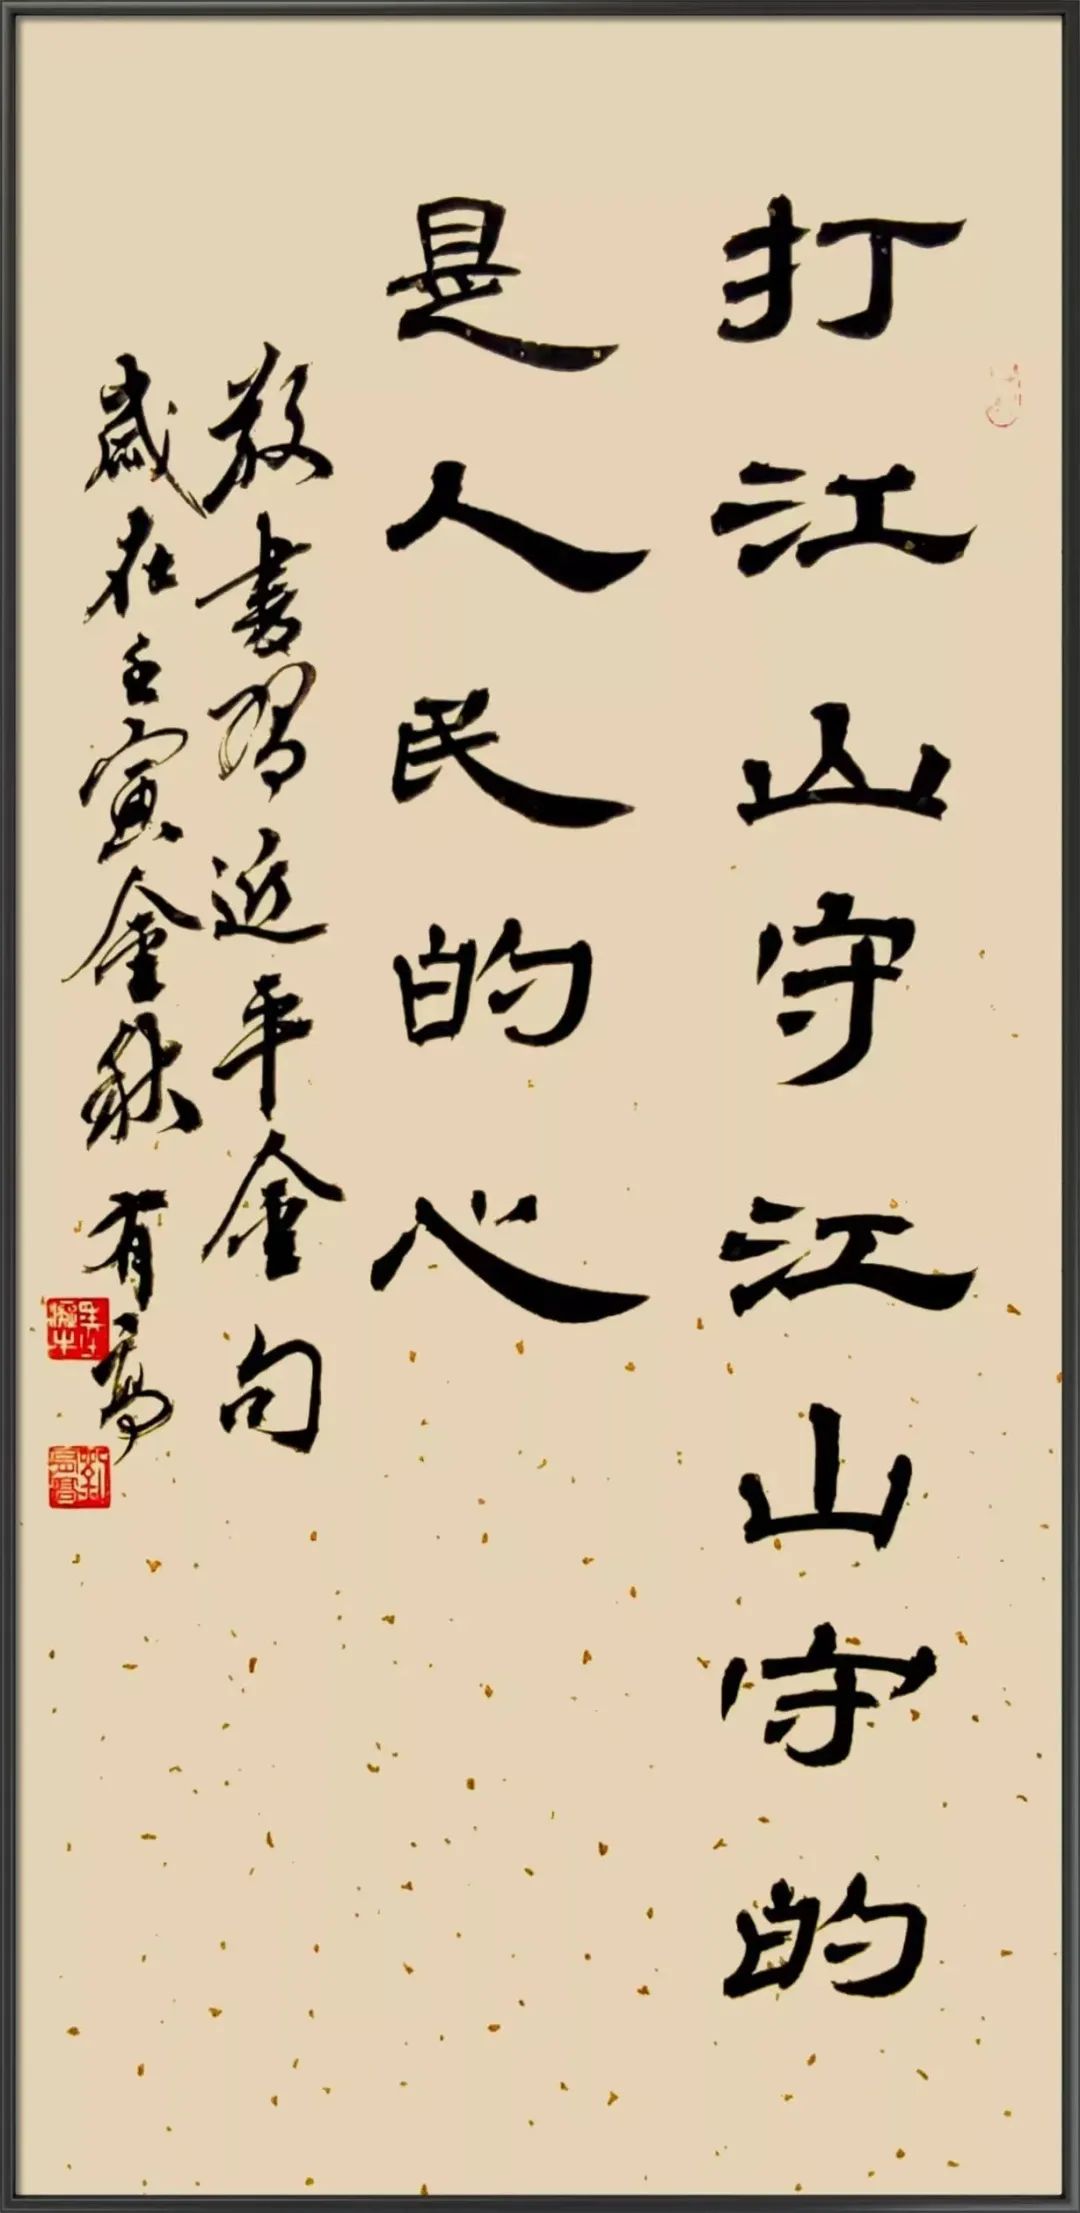 打江山守江山守的
是人民的心
敬书习近平金句
岁在壬寅金秋 有亭